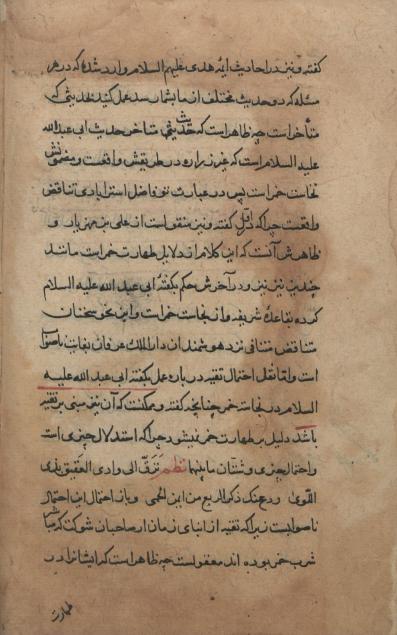 کفته و نیز در احادیث ائمه هدی علیهم السلام وارد شده که در هر
مسئله که دو حدیث مختلف از ما بشما رسد عمل کنید بحدیثی که
متأخر است چه ظاهر است که حدیثی متأخر حدیث ابی عبدالله
علیه السلام است که غیر زراره در طریقش واقعست و مضمونش
نجاست خمر است پس در عبارت فاضل استرابادی تناقض
واقعست چراکه اول گفته و نیز منقول است از علی بن مهزیار و
ظاهرش آنست که این کلام از دلایل طهارت خمر است مانند
چندین نیز نیز و در آخرش حکم بگفتهٔ ابی عبد الله علیه السلام
کرده بقاعدهٔ شریفه و از نجاست خمر است و این نحو سخنان
متناقض متنافی نزد هوشمندان دار الملک عرفان بغایت ناصواب
است و اما نقل احتمال تقیه در باره عمل بگفته ابی عبد الله علیه
السلام در نجاست خمر چنانچه کفته و ممکنست که آن نیز مبنی بر تقیه
باشد دلیل بر طهارت خمر نمیشود چراکه استدلال چیزی است
و احتمال چیزی و شتان ما بینهما نظم ترقّ الی وادی العقیق بذی
اللّوی ودع عنک ذکر الربع من ابن الحمی و باز احتمال این احتمال
ناصوابست زیراکه تقیه از ابنای زمان از صاحبان شوکت که
شرب خمر بوده اند معقولست چه ظاهر است که ایشانرا در
طهارت